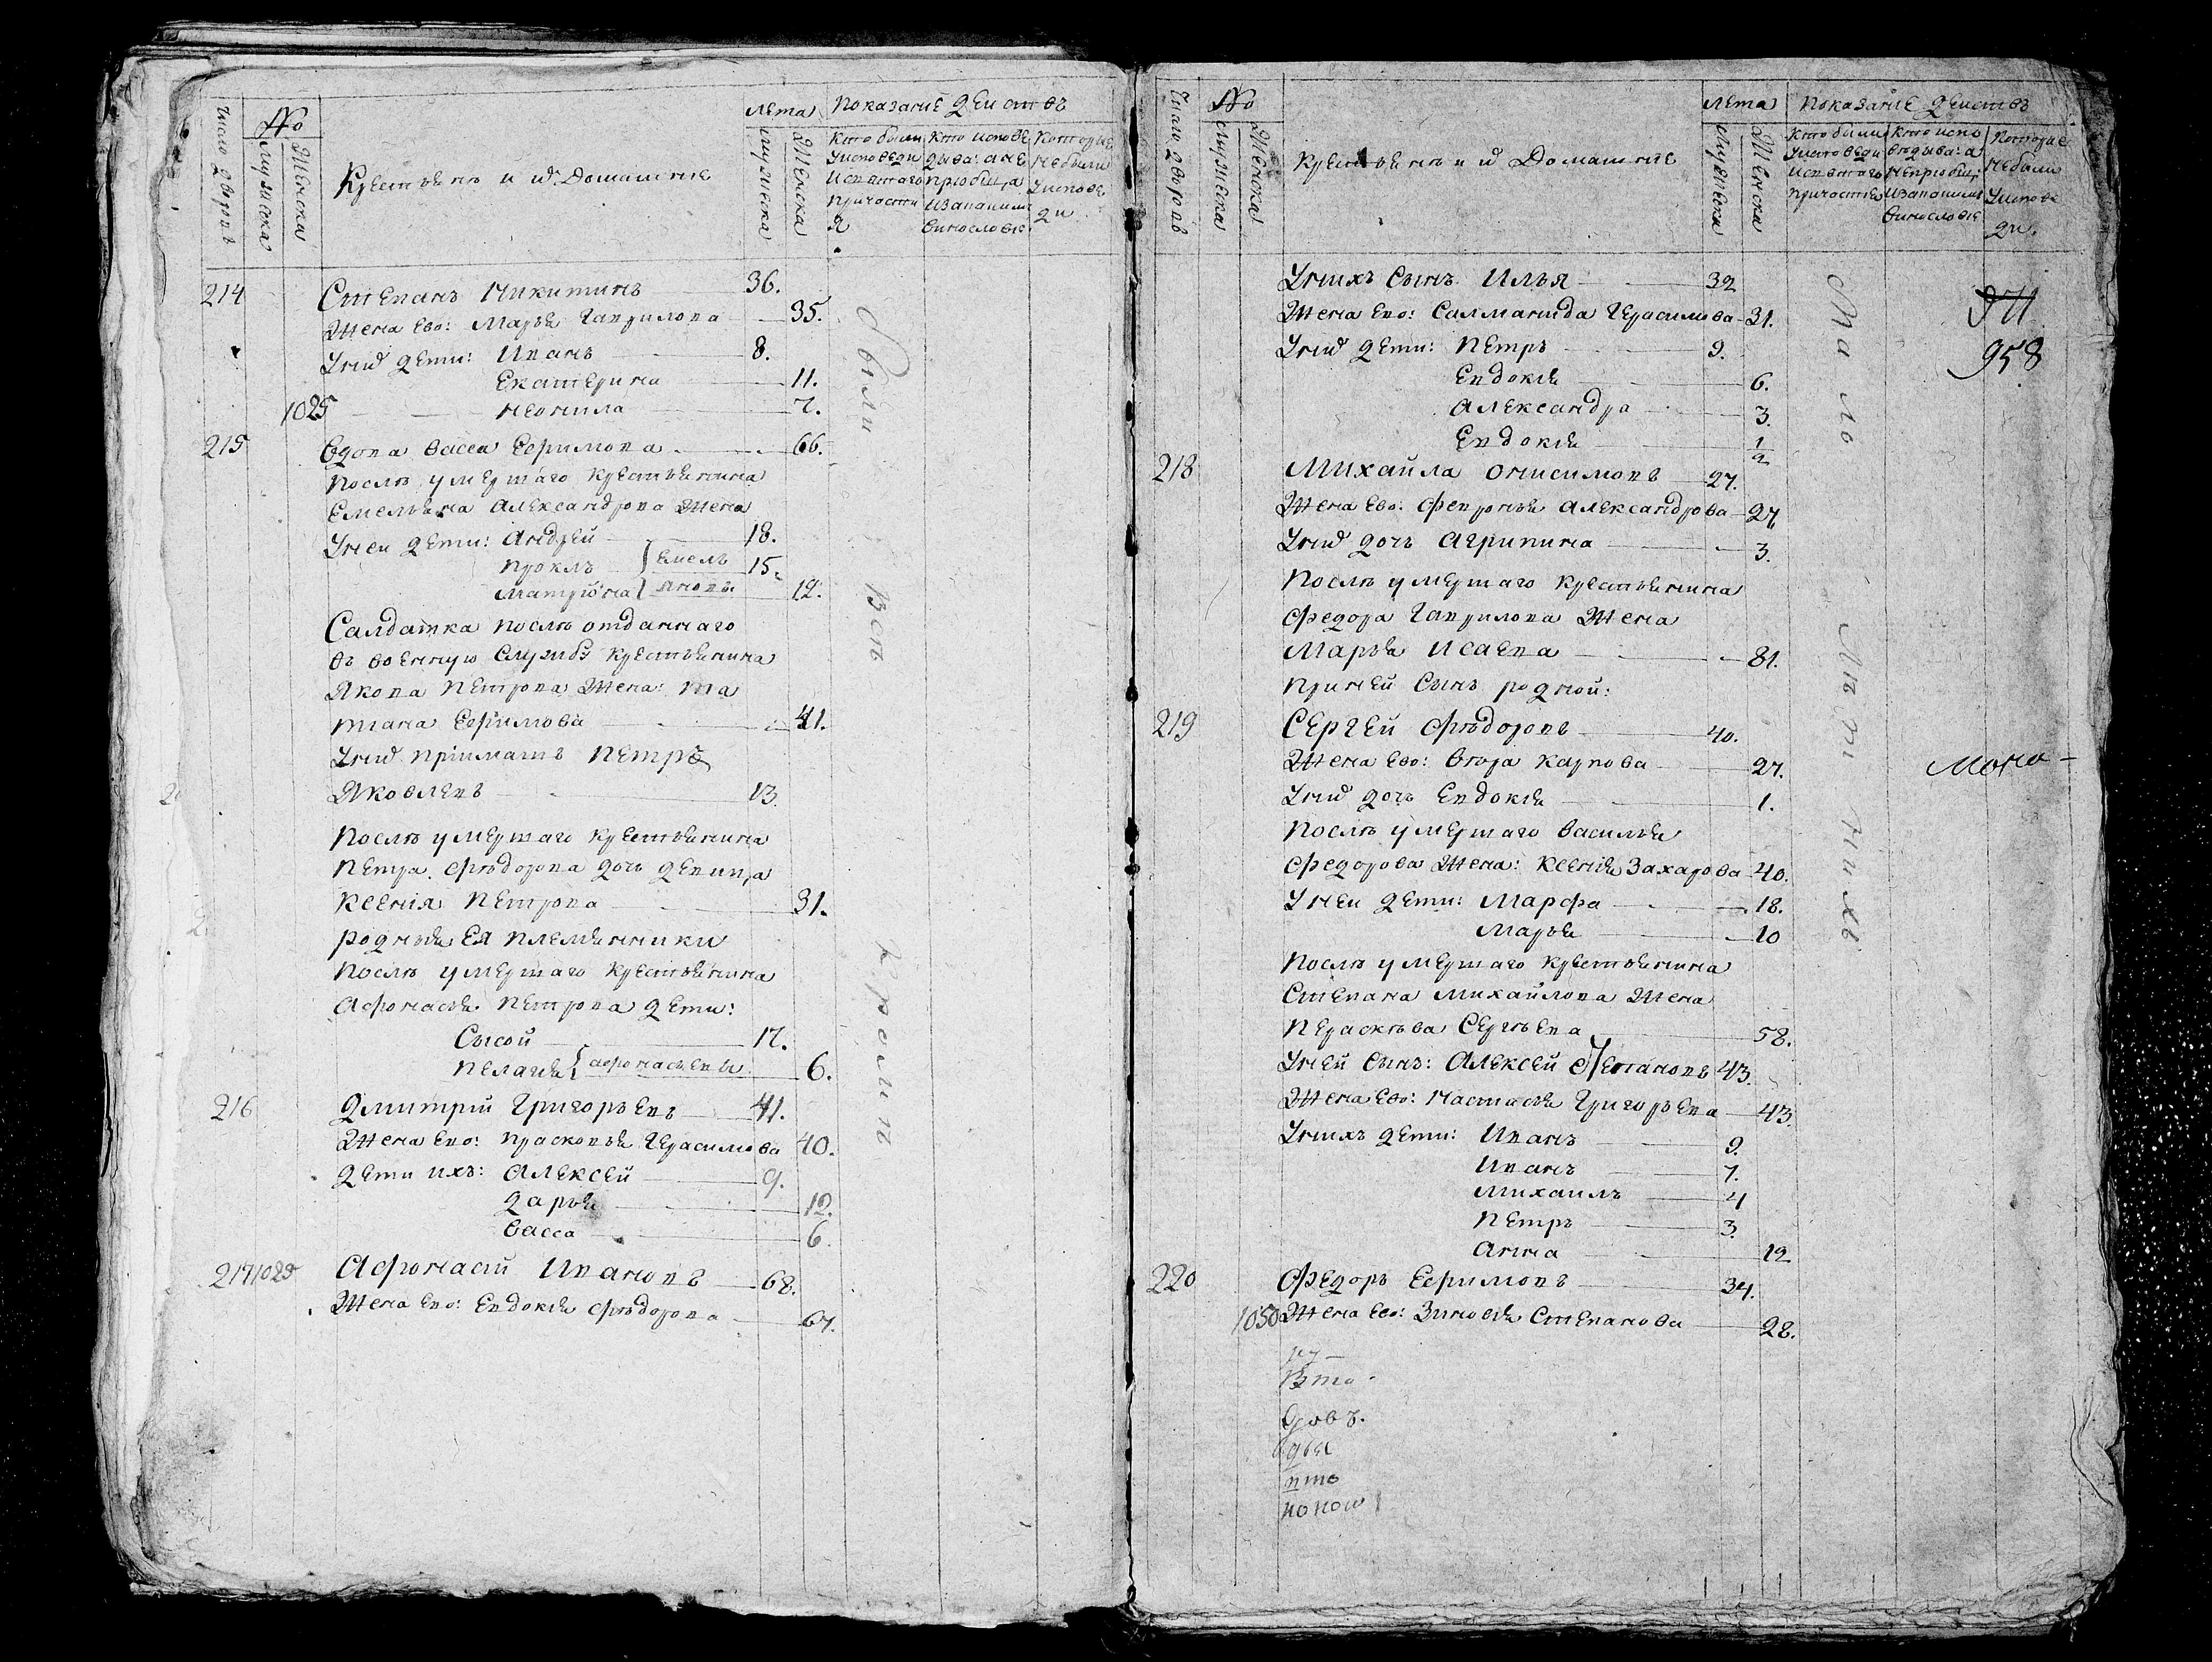 Число дворовъ
№
Мужиска
Женска
Крестьянъ и ӱ Домашние
лета
мужиска
Женска
Показание Деиствъ
Кто были Уисповеди и святаго причасти я
Кто исповедыва: а не приобщ,а и за какимъ винословие
Которые не были Уисповеди
214
Степанъ никитинъ 36.
Жена Ево: Марья Гаврилова 35.
Унӱ дети: Иванъ 8.
Екатерина 11.
1025 неонила 7.
215
Вдова васса Ефимова 66.
Послѣ умершаго крестьянина
Емельяна Александрова жена
Унеи дети: Андреи 18.
Проклъ } Емель 15.
Матрона } яновы 12.
Салдатка послѣ отданнаго
въ военную службу крестьянина
Якова Петрова жена: та
тиана Ефимова 41.
Унӱ приимашъ Петръ
Яковлевъ 13.
Послѣ умершаго крестьянина
Петра Фѣдорова дочь девица
Ксения Петрова 31.
родныя Ея племянники
Послѣ умершаго крестьянина
Афонасья Петрова дети:
Сысой 17.
Пелагия { афонасьевы 6.
216
Дмитрии Григорьевъ 41.
Жена Ево: Прасковья Герасимова 40.
Дети ихъ: Алексей 9.
Дарья 12.
Васса 6.
217 1029
Афонасии Ивановъ 68.
Жена Ево: Евдокия Фѣдорова 67.
были
Всѣ
кромѣ
Число дворовъ
№
Мужиска
Женска
Крестьянъ и ӱ Домашние
лета
Мужиска
Женска
Показание деиствъ
Кто были Уисповеди и святаго причастия
Кто испо ведыва: а не приобщ: и за какимъ винословие
Которые не были Уисповеди.
Унихъ Сынъ Илья 32
Жена Ево: Салманида Герасимова 31.
Унӱ дети: Петръ 9.
Евдокия 6.
Александра 3.
Евдокия 1/2
218
Михаила Онисимовъ 27.
Жена Ево: Февронья Александрова 27
Унӱ дочь Агрипина 3.
Послѣ умершаго крестьянина
Федора Гаврилова Жена
Марья Исаева 81.
При ней Сынъ родной:
219
Сергей Фѣдоровъ 40.
Жена Ево: Вѣра Карпова 27.
Унӱ дочь Евдокия 1.
Послѣ умершаго Василья
Федорова Жена: Ксения Захарова 40.
Унеи дети: Марфа 18.
Марья 10
Послѣ умершаго крестьянина
Степана Михайлова Жена
Пераскѣва Сергѣева 58.
Уней Сынъ: Алексей Степановъ 43.
Жена Ево: Настасья Григорьева 43.
Унихъ дети: Иванъ 9.
Иванъ 7.
Михаилъ 4
Петръ 3.
Анна 12
220
Федоръ Ефимовъ 34.
1050 Жена Ево: Зиновия Степанова 28.
Мало
Лѣтнихъ
971
958